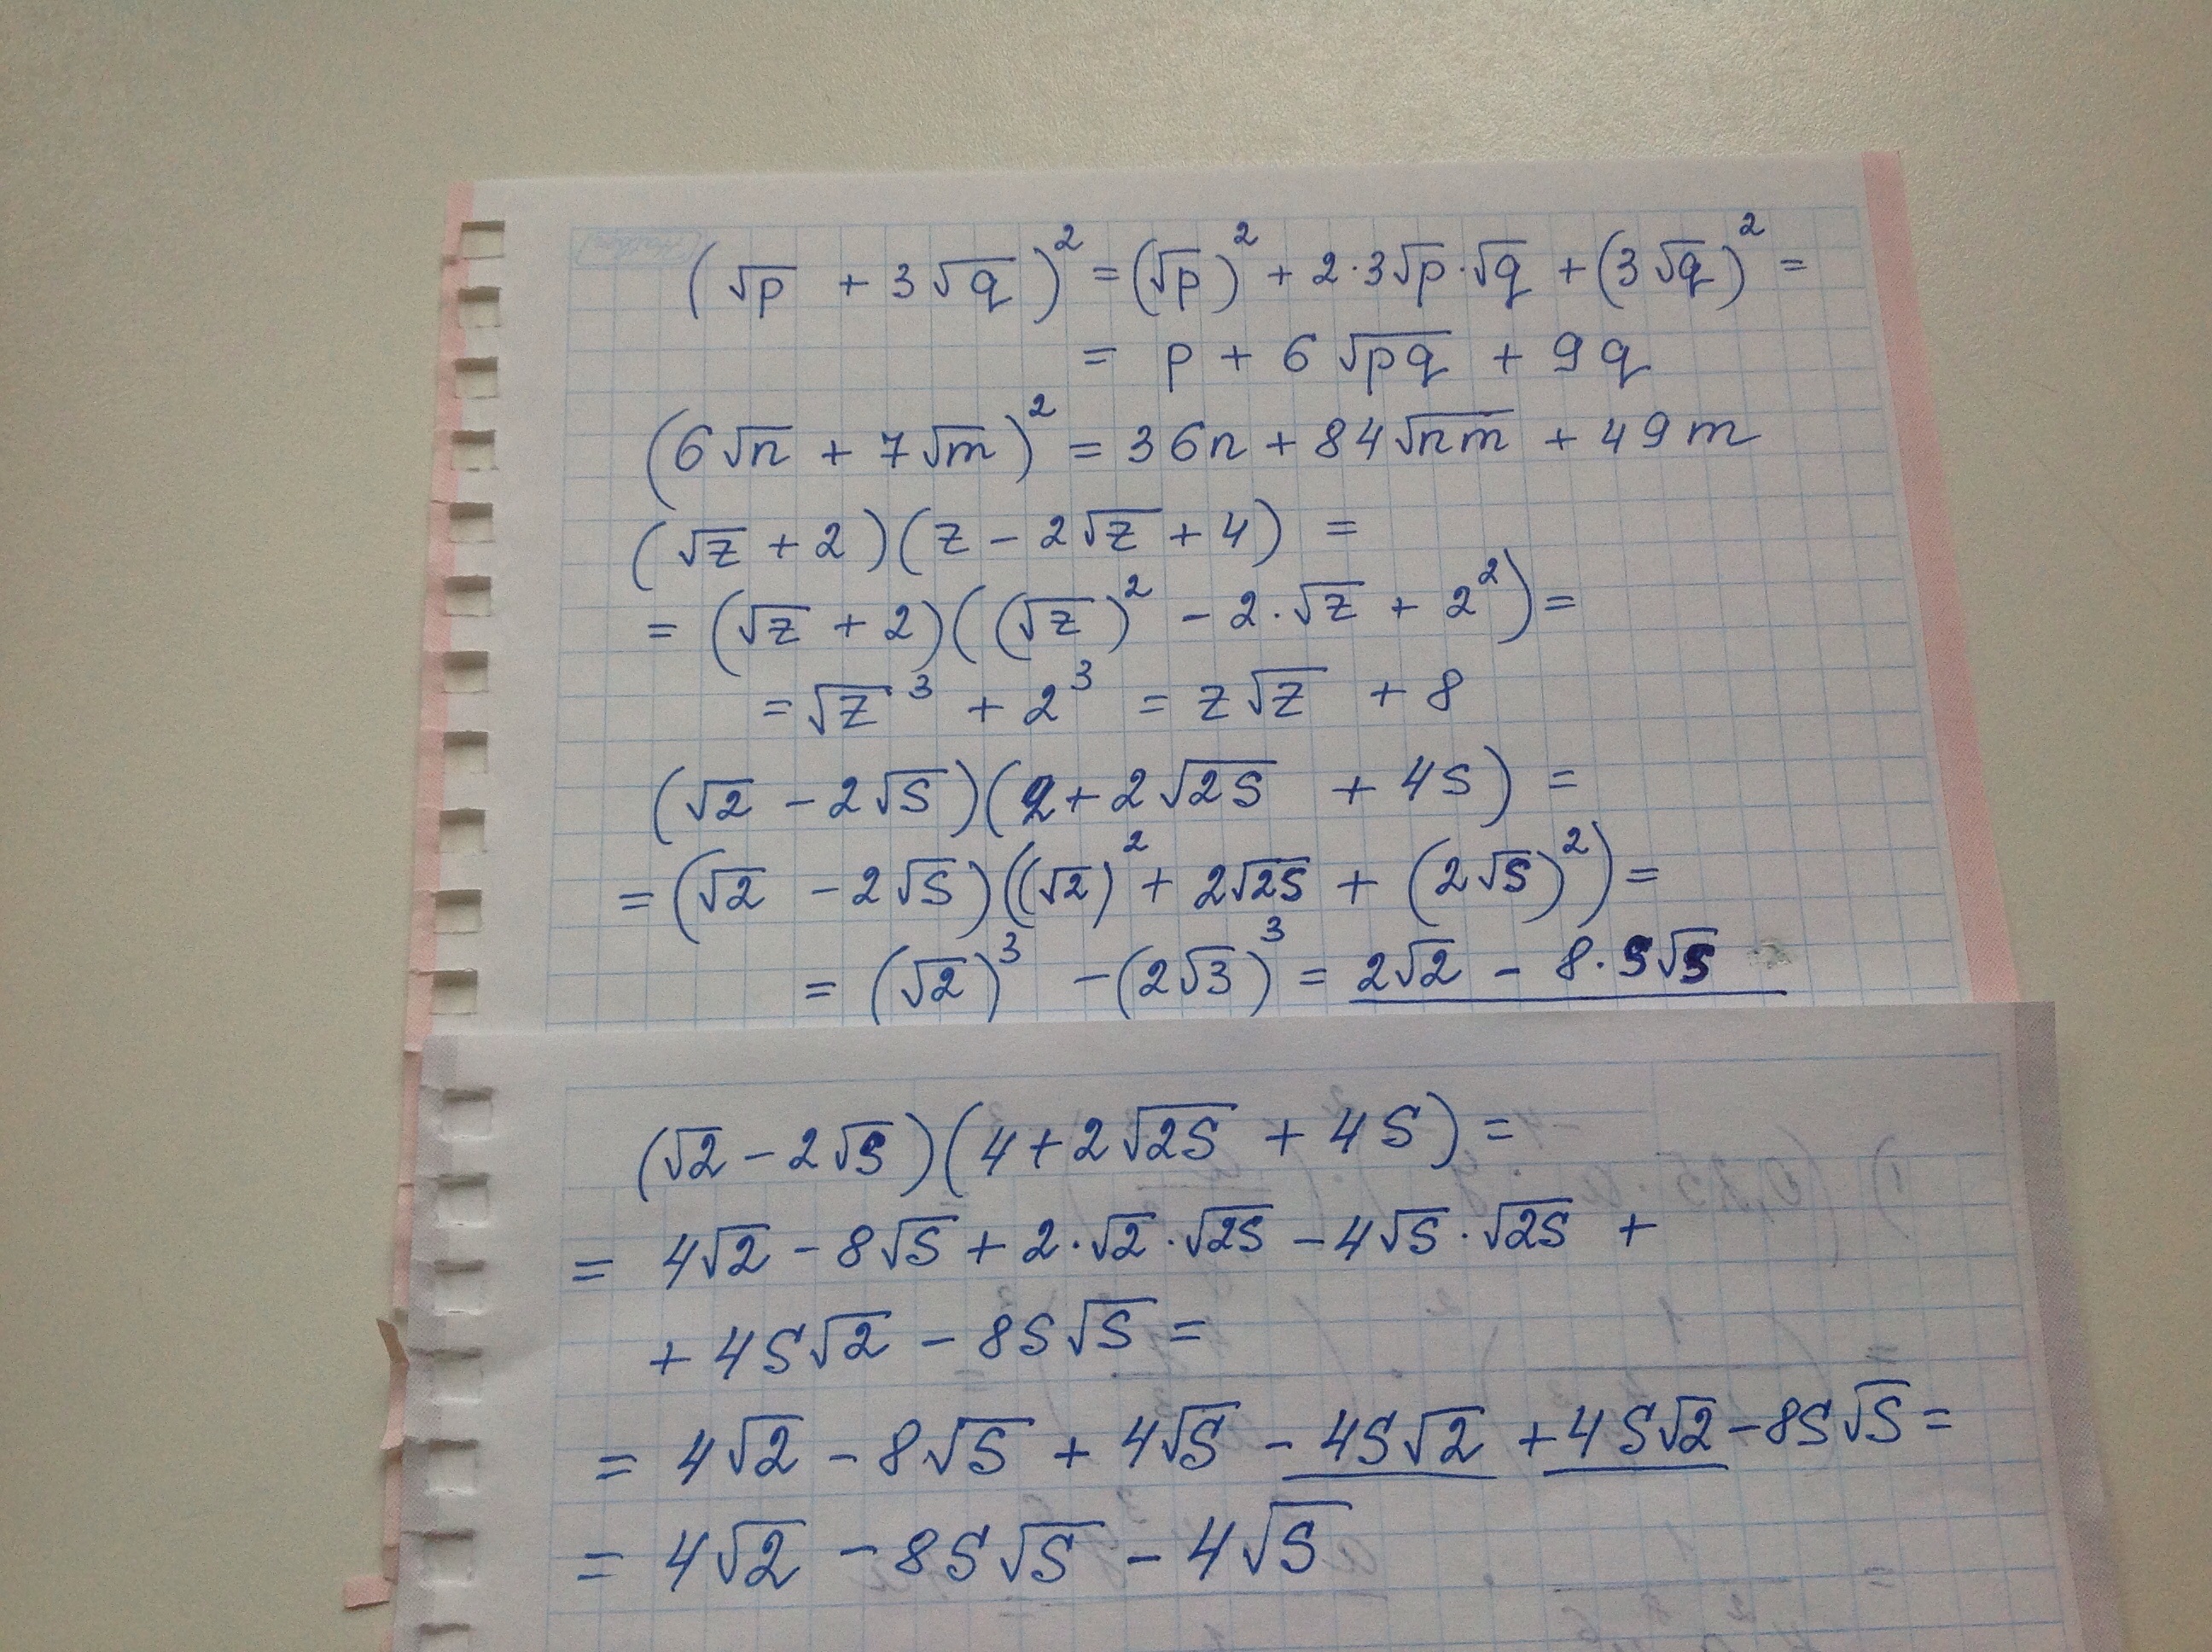 (√p + 3√q)² = (√p)² + 2·3√p·√q + (3√q)² =
= p + 6√pq + 9q
(6√n + 7√m)² = 36n + 84√nm + 49m
(√z + 2)(z - 2√z + 4) =
= (√z + 2)((√z)² - 2·√z + 2²) =
= √z³ + 2³ = z√z + 8
(√2 - 2√s)(2 + 2√2s + 4s) =
= (√2 - 2√s)((√2)² + 2√2s + (2√s)²) =
= (√2)³ - (2√3)³ = 2√2 - 8·s√s
(√2 - 2√s)(4 + 2√2s + 4s) =
= 4√2 - 8√s + 2·√2·√2s - 4√s·√2s +
+ 4s√2 - 8s√s =
= 4√2 - 8√s + 4√s - 4s√2 + 4s√2 - 8s√s =
= 4√2 - 8s√s - 4√s